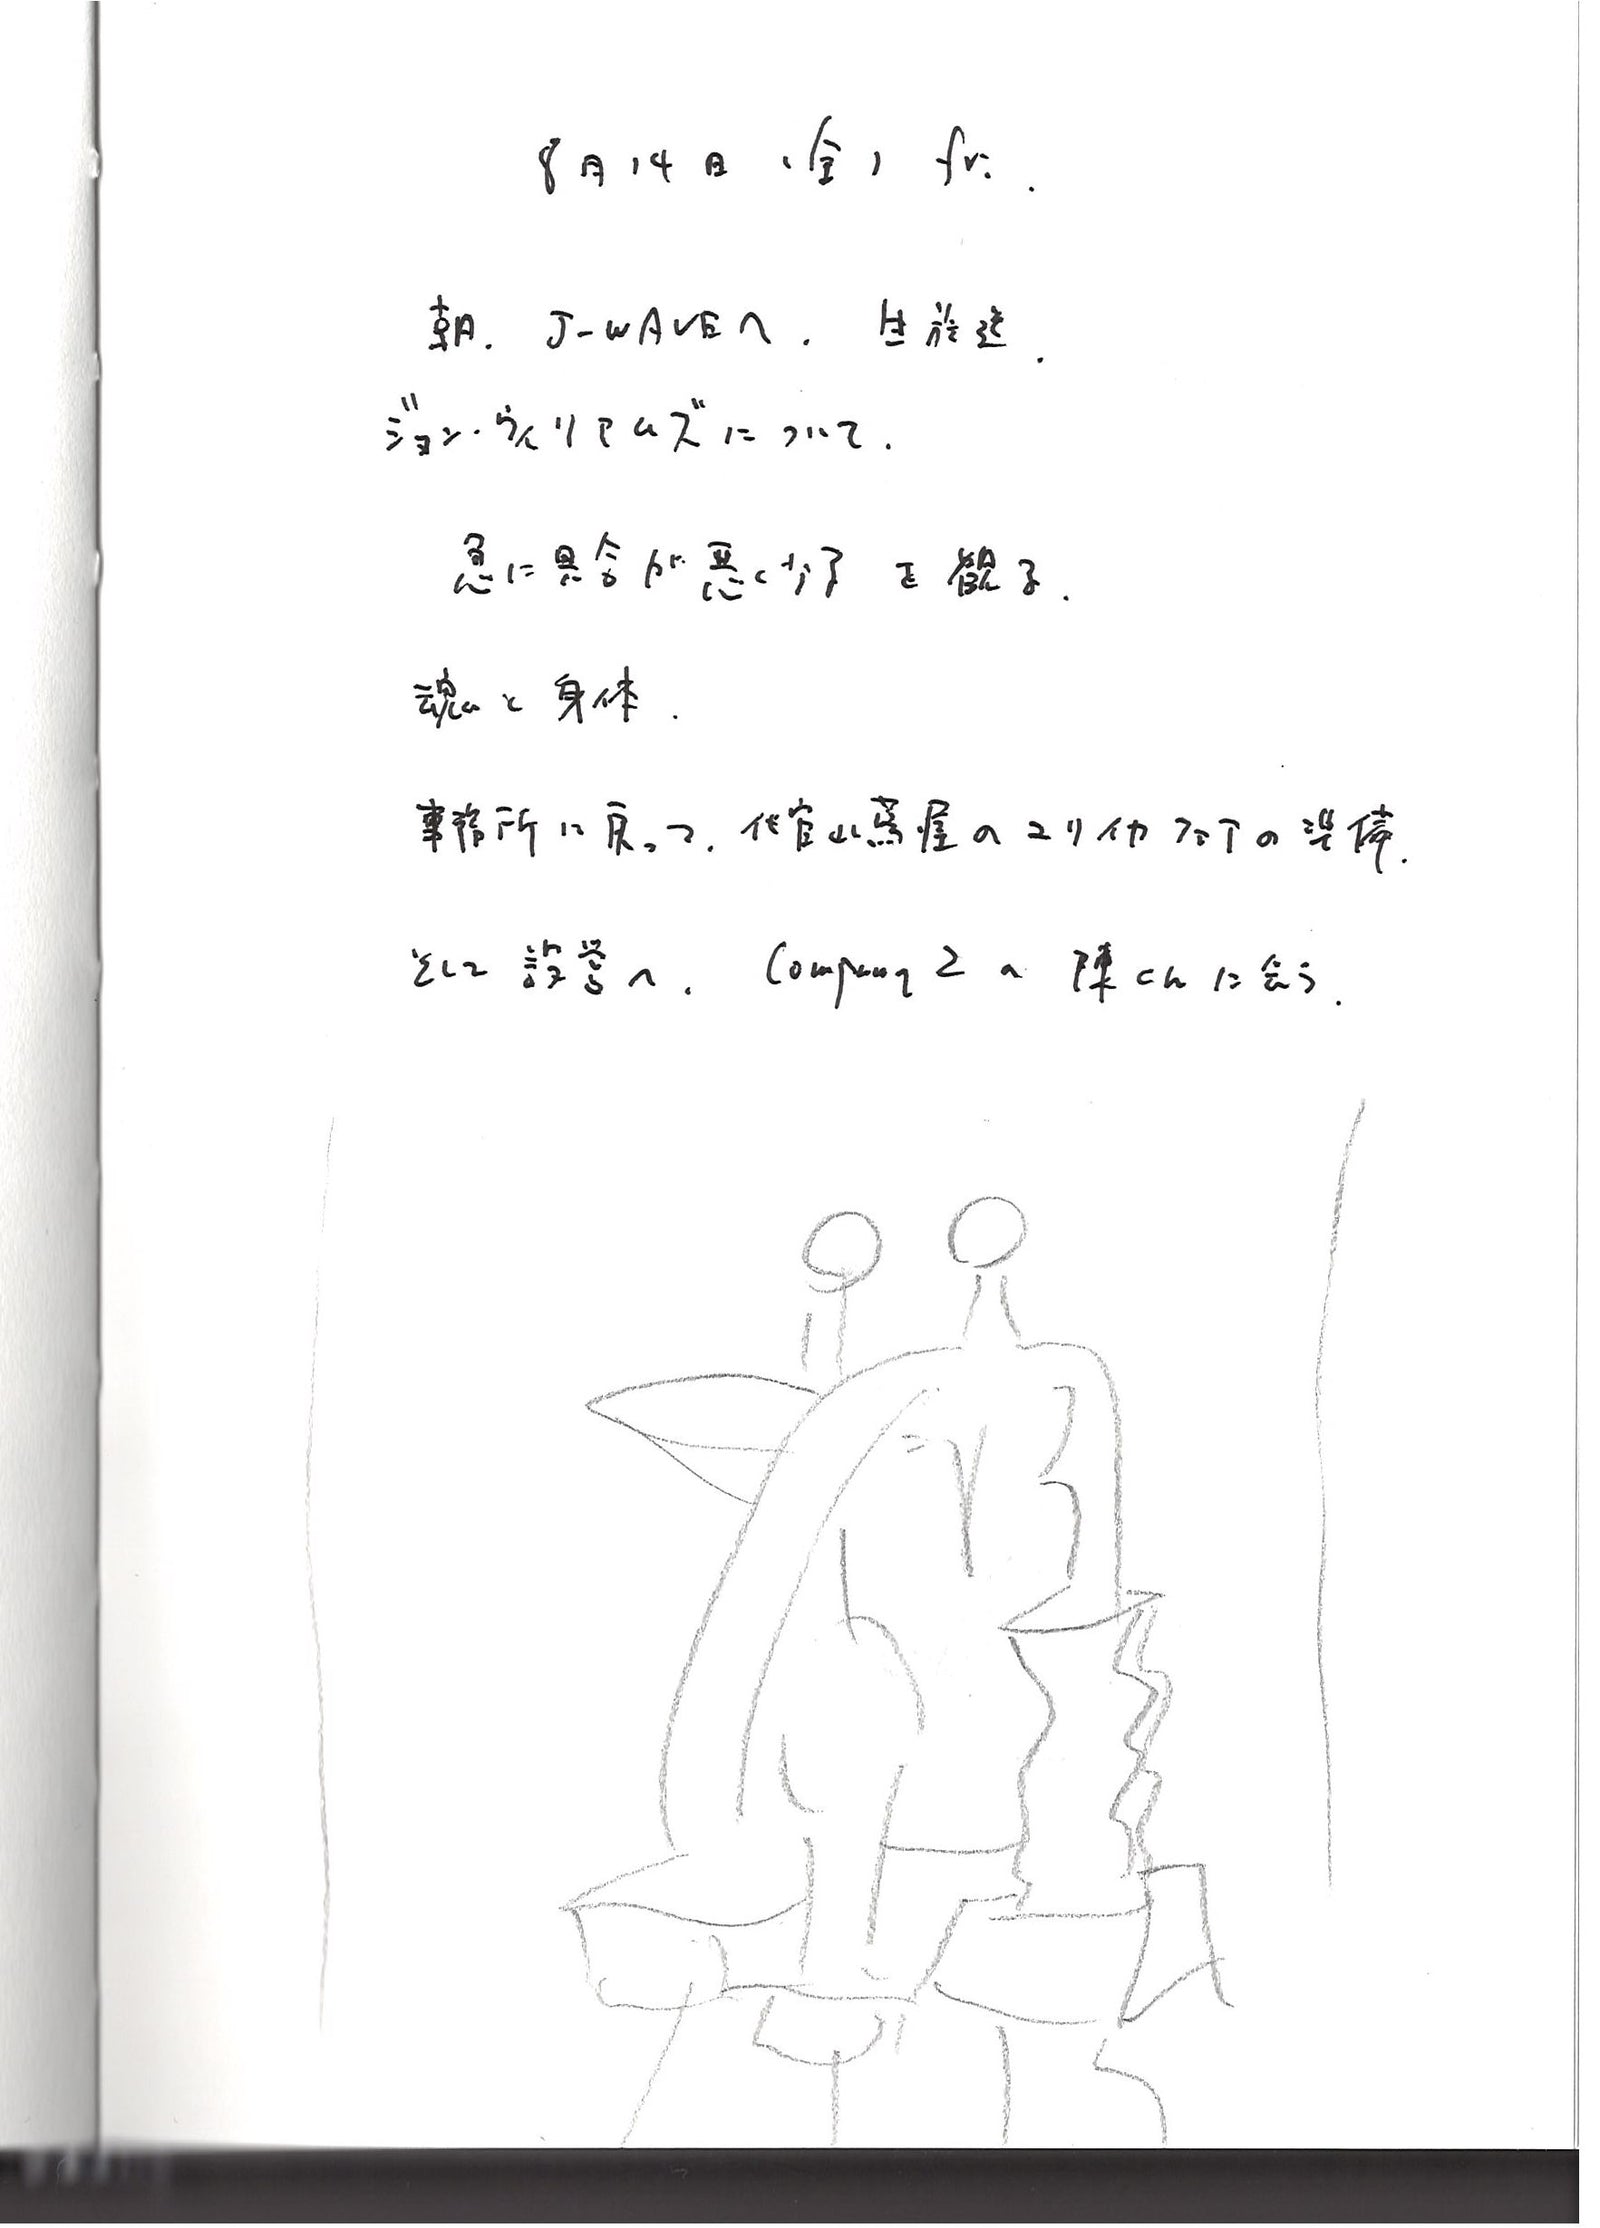 8月14日(金) fri.
朝. J-WAVEへ. 生放送.
ジョン・ウィリアムズについて.
急に具合が悪くなる を観る.
魂と身体.
事務所に戻って. 代官山蔦屋のユリイカフェアの準備.
そして設営へ. Company 2の陳くんに会う.